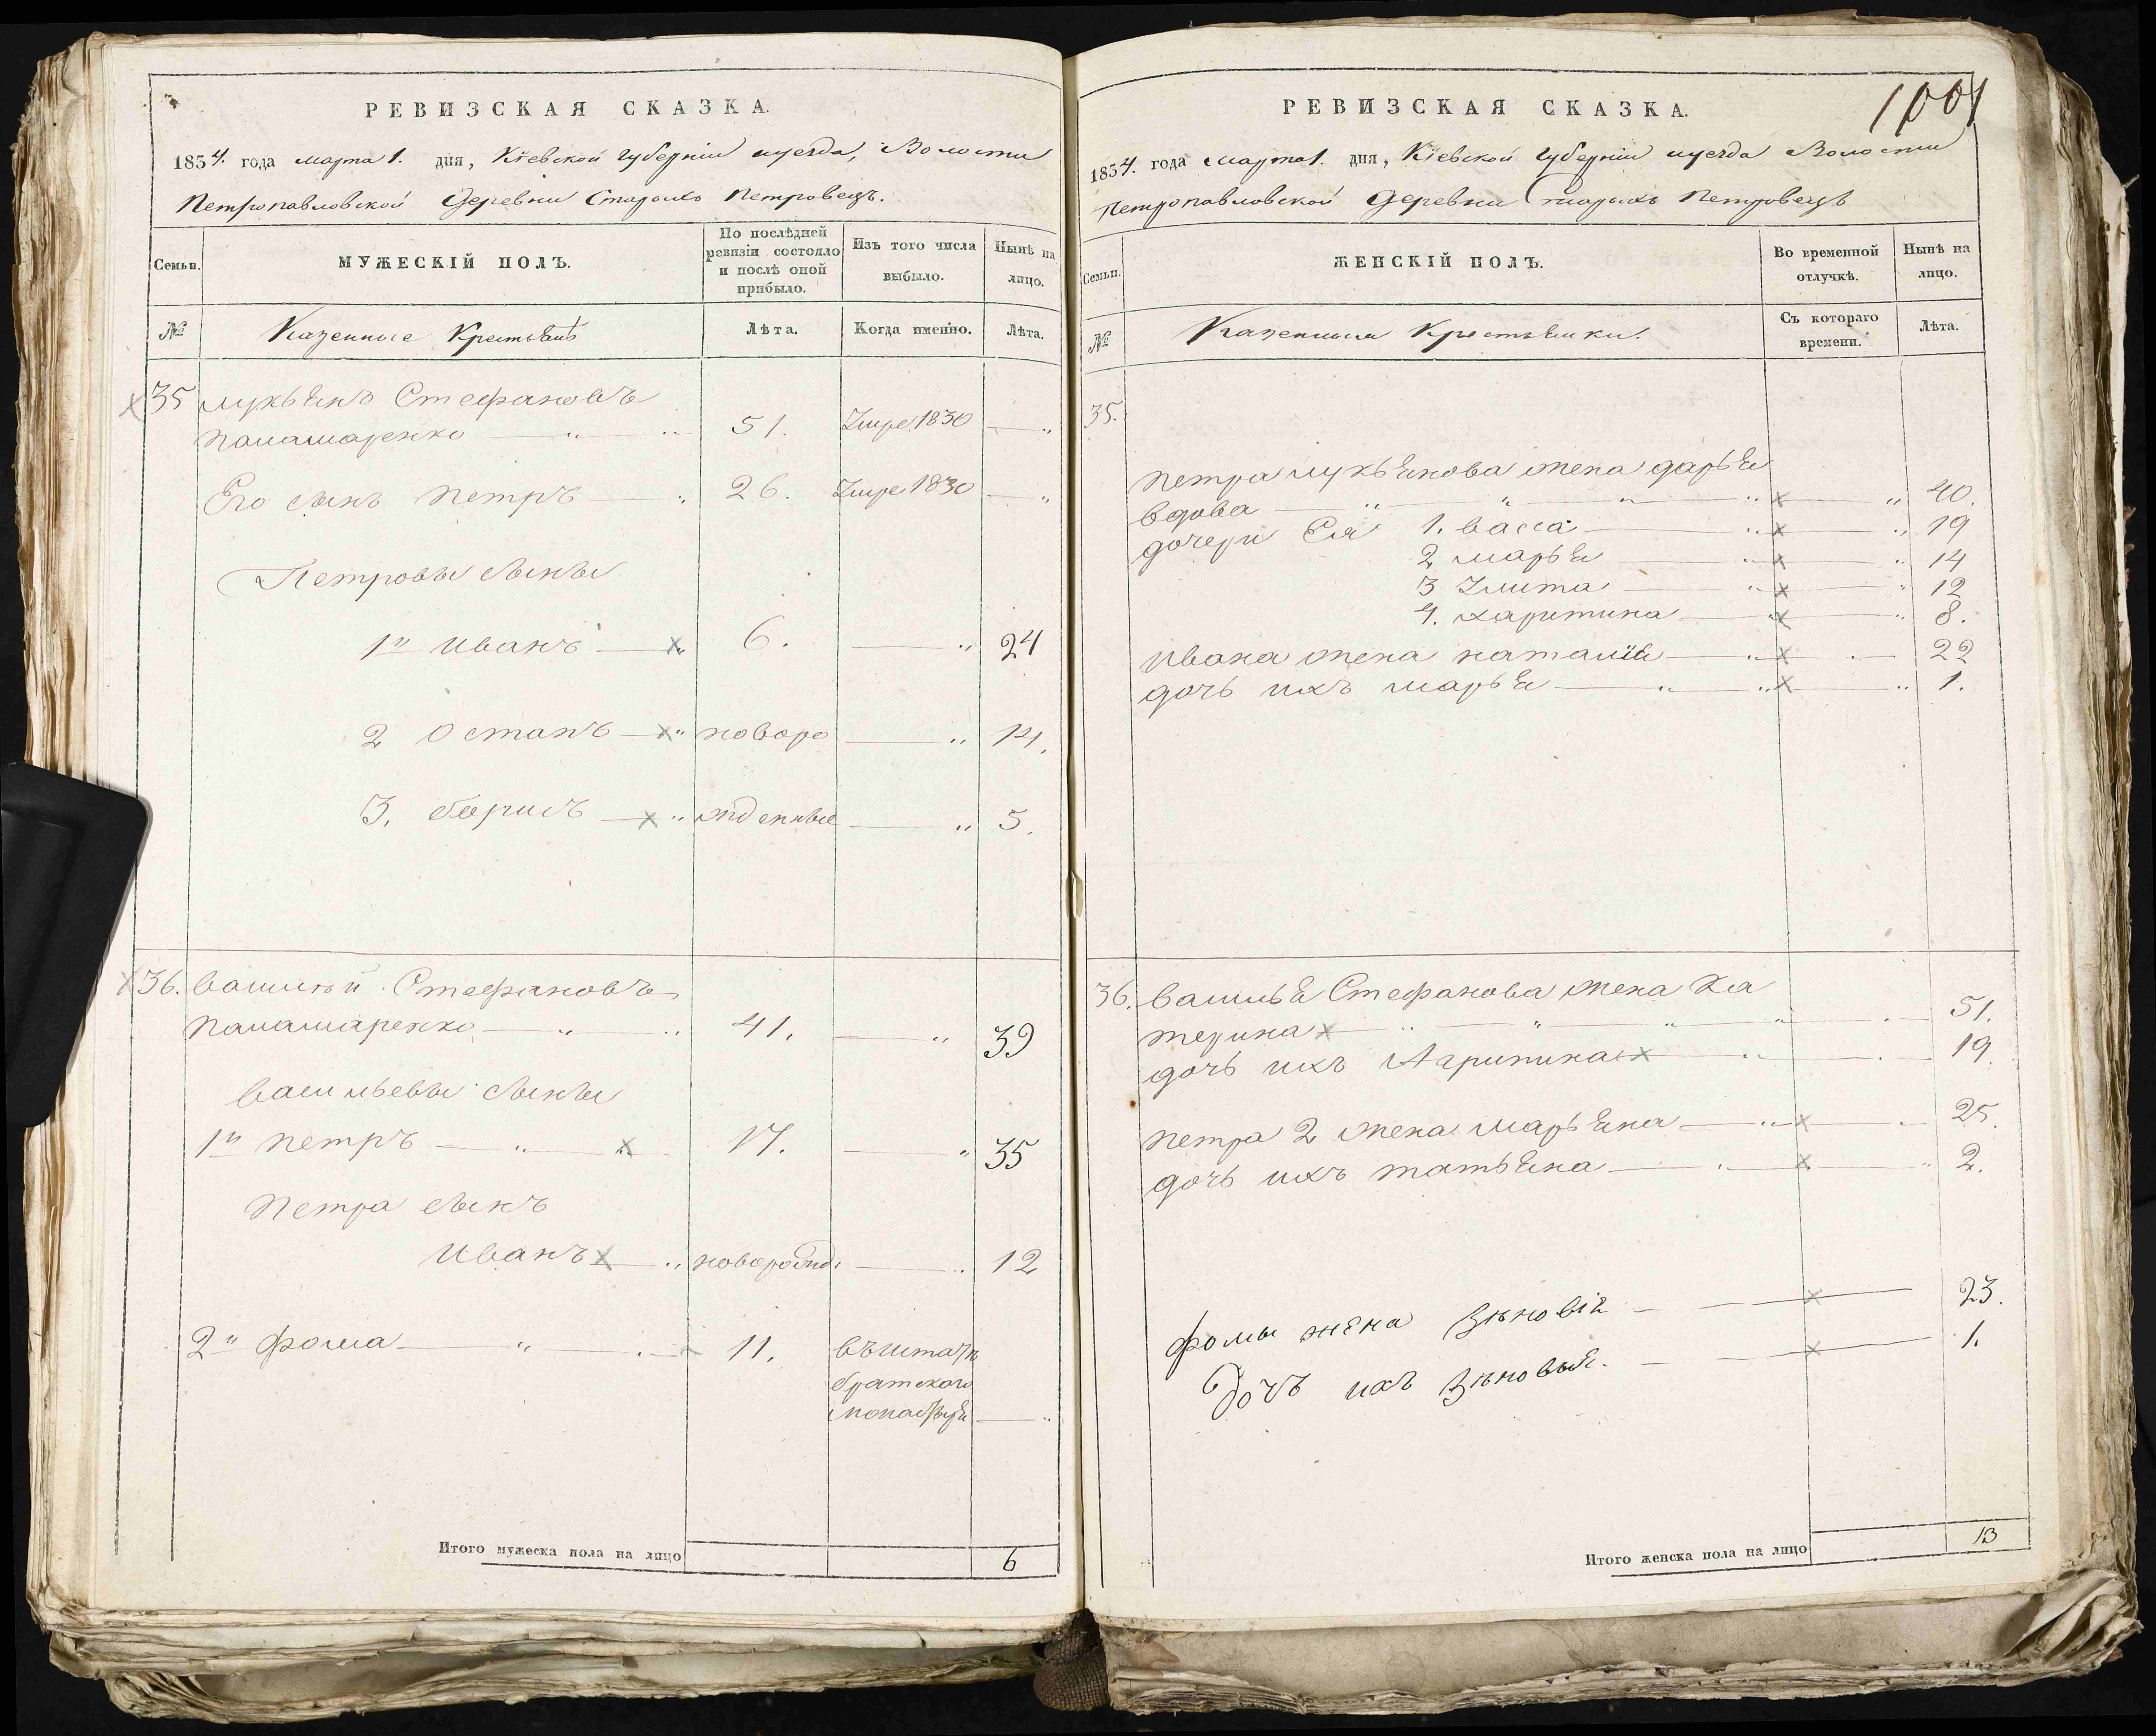 РЕВИЗСКАЯ СКАЗКА.
1834. года марта 1. дня, Кіевской губерніи иуезда, Волости
Петропавловской деревни Старыхъ Петровецъ.
Семьи.
МУЖЕСКІЙ ПОЛЪ.
По послѣдней ревизіи состояло и послѣ оной прибыло.
Изъ того числа выбыло.
Нынѣ на лицо.
№
Казенные Крестьянѣ
Лѣта.
Когда именно.
Лѣта.
35 лукьянъ Стефановъ
Паламаренко — 51. Умре 1830 —
Его сынъ петръ — 26. Умре 1830 —
Петровы сыны
1й иванъ — 6. — 24
2 Остапъ — новоро — 14.
3. борисъ — жденные — 5.
36. василій Стефановъ
Паламаренко — 41. — 39
васильевы сыны
1й петръ — 17. — 35
Петра сынъ
иванъ — новорожд. — 12
2й фома — 11. въштатъ
братского
монастыря —
Итого мужеска пола на лицо 6
РЕВИЗСКАЯ СКАЗКА.
1001
1834. года марта 1. дня, Кіевской губерніи иуезда Волости
Петропавловской деревни Старыхъ Петровецъ
Семьи.
ЖЕНСКІЙ ПОЛЪ.
Во временной отлучкѣ.
Нынѣ на лицо.
№
Казенныя Крестьянки.
Съ котораго времени.
Лѣта.
35.
Петра лукьянова жена дарья
вдова — 40.
дочери Ея 1. васса — 19
2 марья — 14
3 Улита — 12
4. харитина — 8.
ивана жена наталія — 22
дочь ихъ марья — 1.
36. василья Стефанова жена Ка
терина — 51.
дочь ихъ Агрипина — 19
петра 2 жена марьяна — 25.
дочь ихъ татьяна — 2.
фомы жена Зѣновія — 23.
дочъ ихъ Зѣновья. — 1.
Итого женска пола на лицо 13